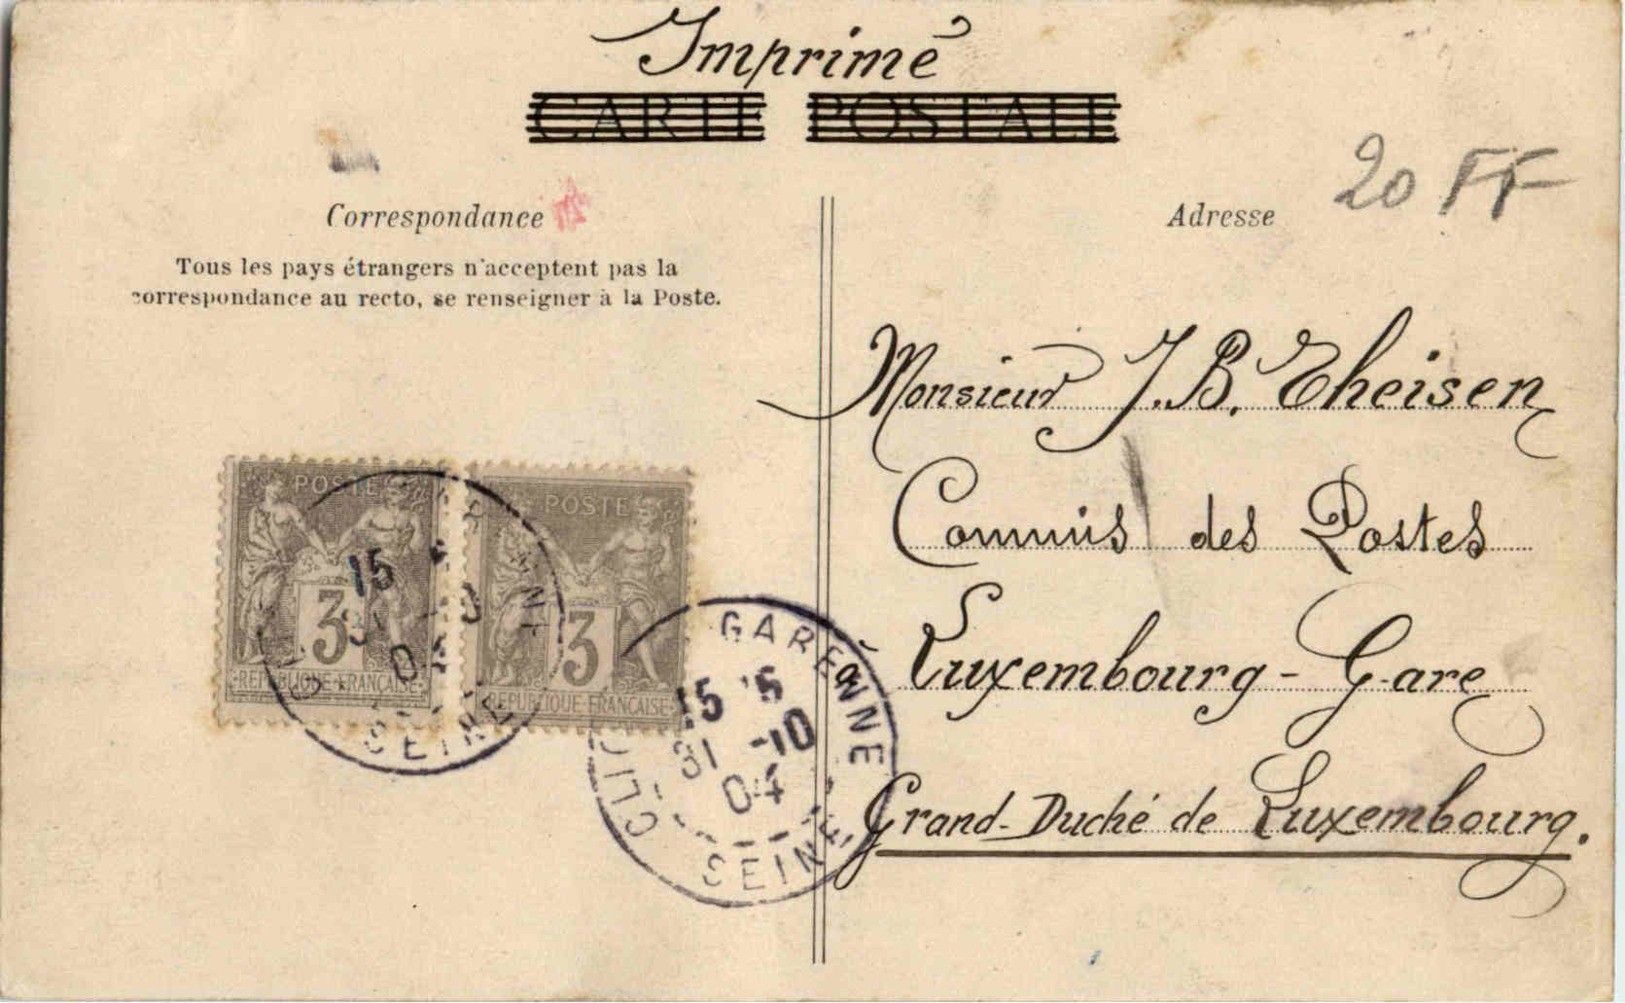 Imprimé
CARTE POSTALE
20 FF
Correspondance
Adresse
Tous les pays étrangers n'acceptent pas la
correspondance au recto, se renseigner à la Poste.
Monsieur J. B. Theisen
Commis des Postes
à Luxembourg-Gare
Grand-Duché de Luxembourg.
POSTE
3
REPUBLIQUE FRANÇAISE
POSTE
3
REPUBLIQUE FRANÇAISE
15
SEINE
GARENNE
15
31 -10
04
SEINE